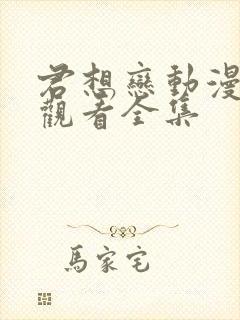 君想戀動漫
觀看全集
馬家宅